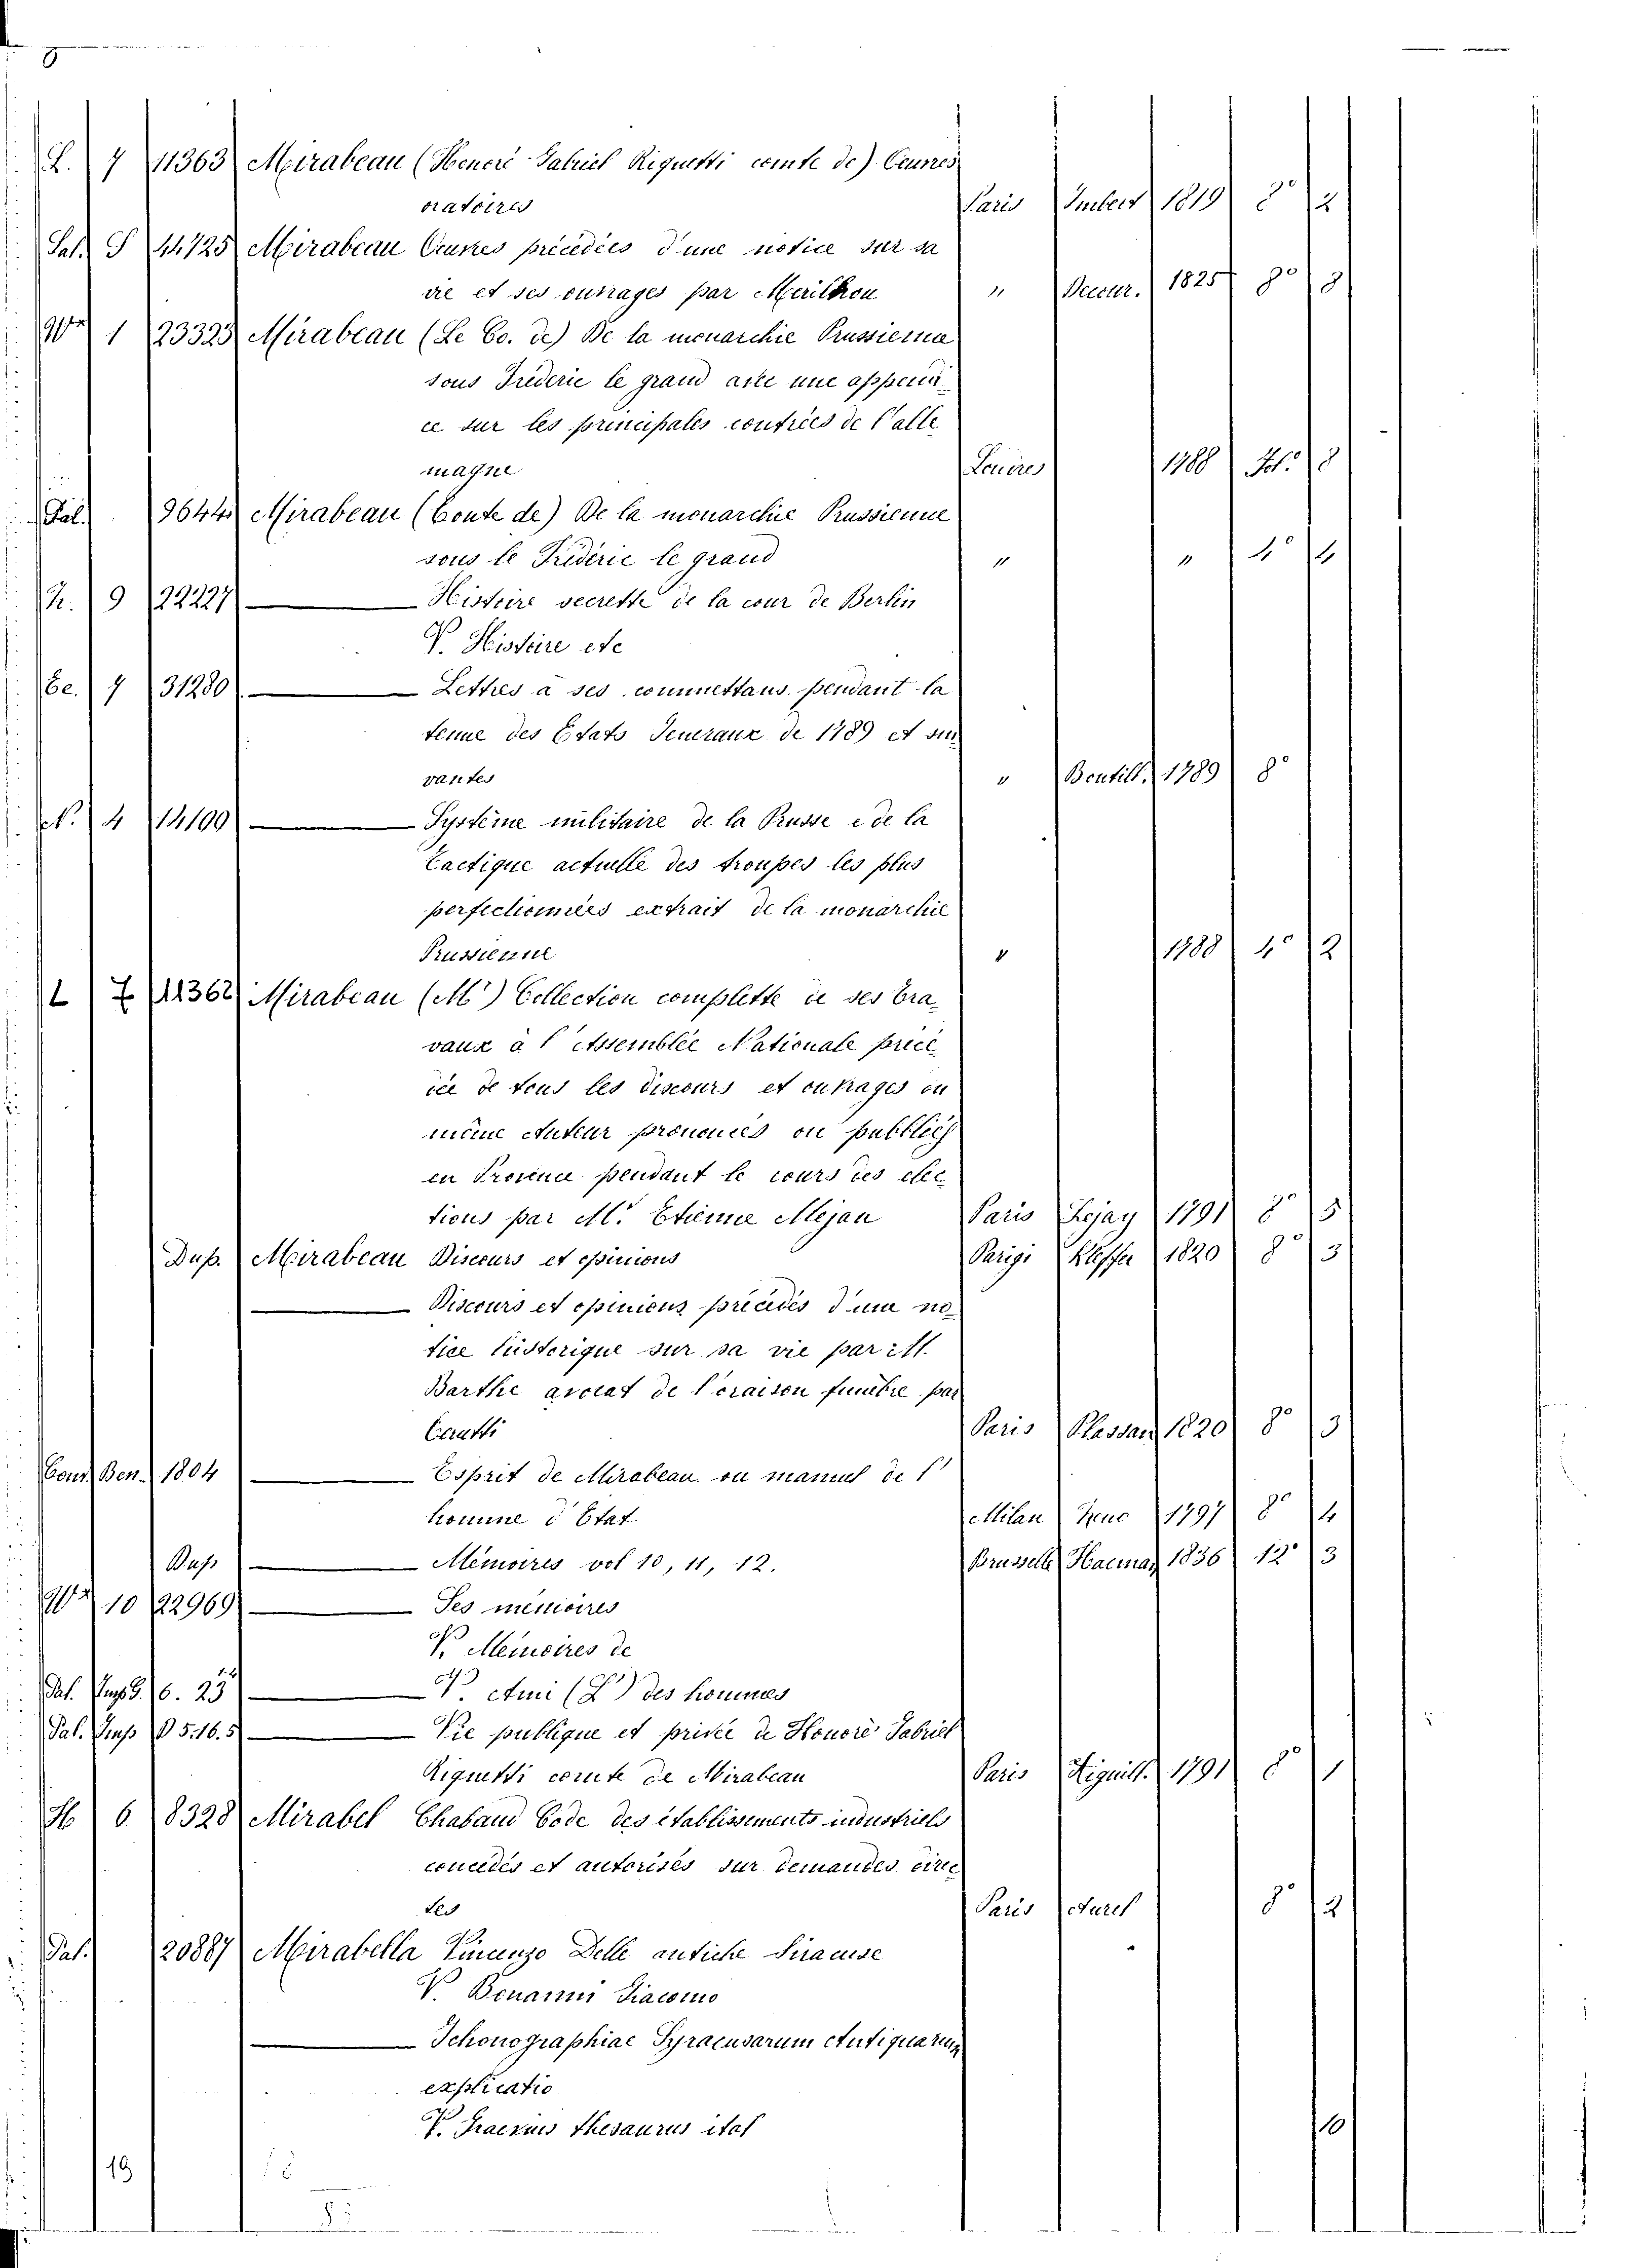 8
L. 7 11363 Mirabeau (Honoré Gabriel Riquetti comte de) Œuvres
oratoires Paris Imbert 1819 8° 2
Sal. G 44725 Mirabeau Œuvres précédées d'une notice sur sa
vie et ses outrages par Merilhon " Decour. 1825 8° 8
1 23323 Mirabeau (Le Co. de) De la monarchie Prussienna
sous Frèderic le grand avec une appendi
ce sur les principales contrées de l'alle
magne Londres 1788 fol. 8
Pal. 9644 Mirabeau (Conte de) De la monarchie Prussienne
sous le Frèderic le grand " " 4° 4
R. 9 22227 — Histoire secrette de la cour de Berlin
V. Histoire etc
Ce. 7 31280 — Lettres a ses committans pendant la
tenue des Etats Generaux de 1789 et sui
vantes " Boutill. 1789 8°
N. 4 14100 — Système militaire de la Prusse e de la
tactique actuelle des troupes les plus
perfectionnées extrait de la monarchie
Prussienne " 1788 4° 2
L 7 11362 Mirabeau (M.r) Collection complette de ses tra
vaux à l'Assemblée Nationale précé
dée de tous les discours et outrages du
même Auteur prononcés ou pubbliés
en Provence pendant le cours des élec
tions par M. Etienne Mejan Paris Lejay 1791 8° 5
Dup. Mirabeau Discours et opinions Parigi Kleffer 1820 8° 3
— Discours et opinions précédés d'une no
tice historique sur sa vie par M.
Barthe avocat de l'oraison funèbre par
Cerutti Paris Plassan 1820 8° 3
Cons. Ben. 1804 — Esprit de Mirabeau ou manuel de l'
homme d'Etat Milan Zeno 1797 8° 4
Dup — Mémoires vol 10, 11, 12. Brusselle Hacman 1836 12° 3
10 22969 — Ses mémoires
V. Mémoires de
Pal. Imp. G. 6. 23 — V. Ami (L') des hommes
Pal. Imp D 5.16.5 — Vie publique et privée de Honorè Gabriel
Riquetti comte de Mirabeau Paris Higuill. 1791 8° 1
H 6 8328 Mirabel Chabaud Code des établissements industriels
concedés et autorisés sur demandes direc
tes Paris Auret 8° 2
Pal. 20887 Mirabella Vincenzo Delle antiche Siracuse
V. Bonanni Giacomo
— Ichonographiae Syracusarum Antiquarum
explicatio
V. Graevius thesaurus ital 10
19 18